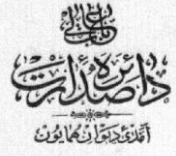 باب عالی
دائرهٔ صدارت
آمدئ دیوان همایون